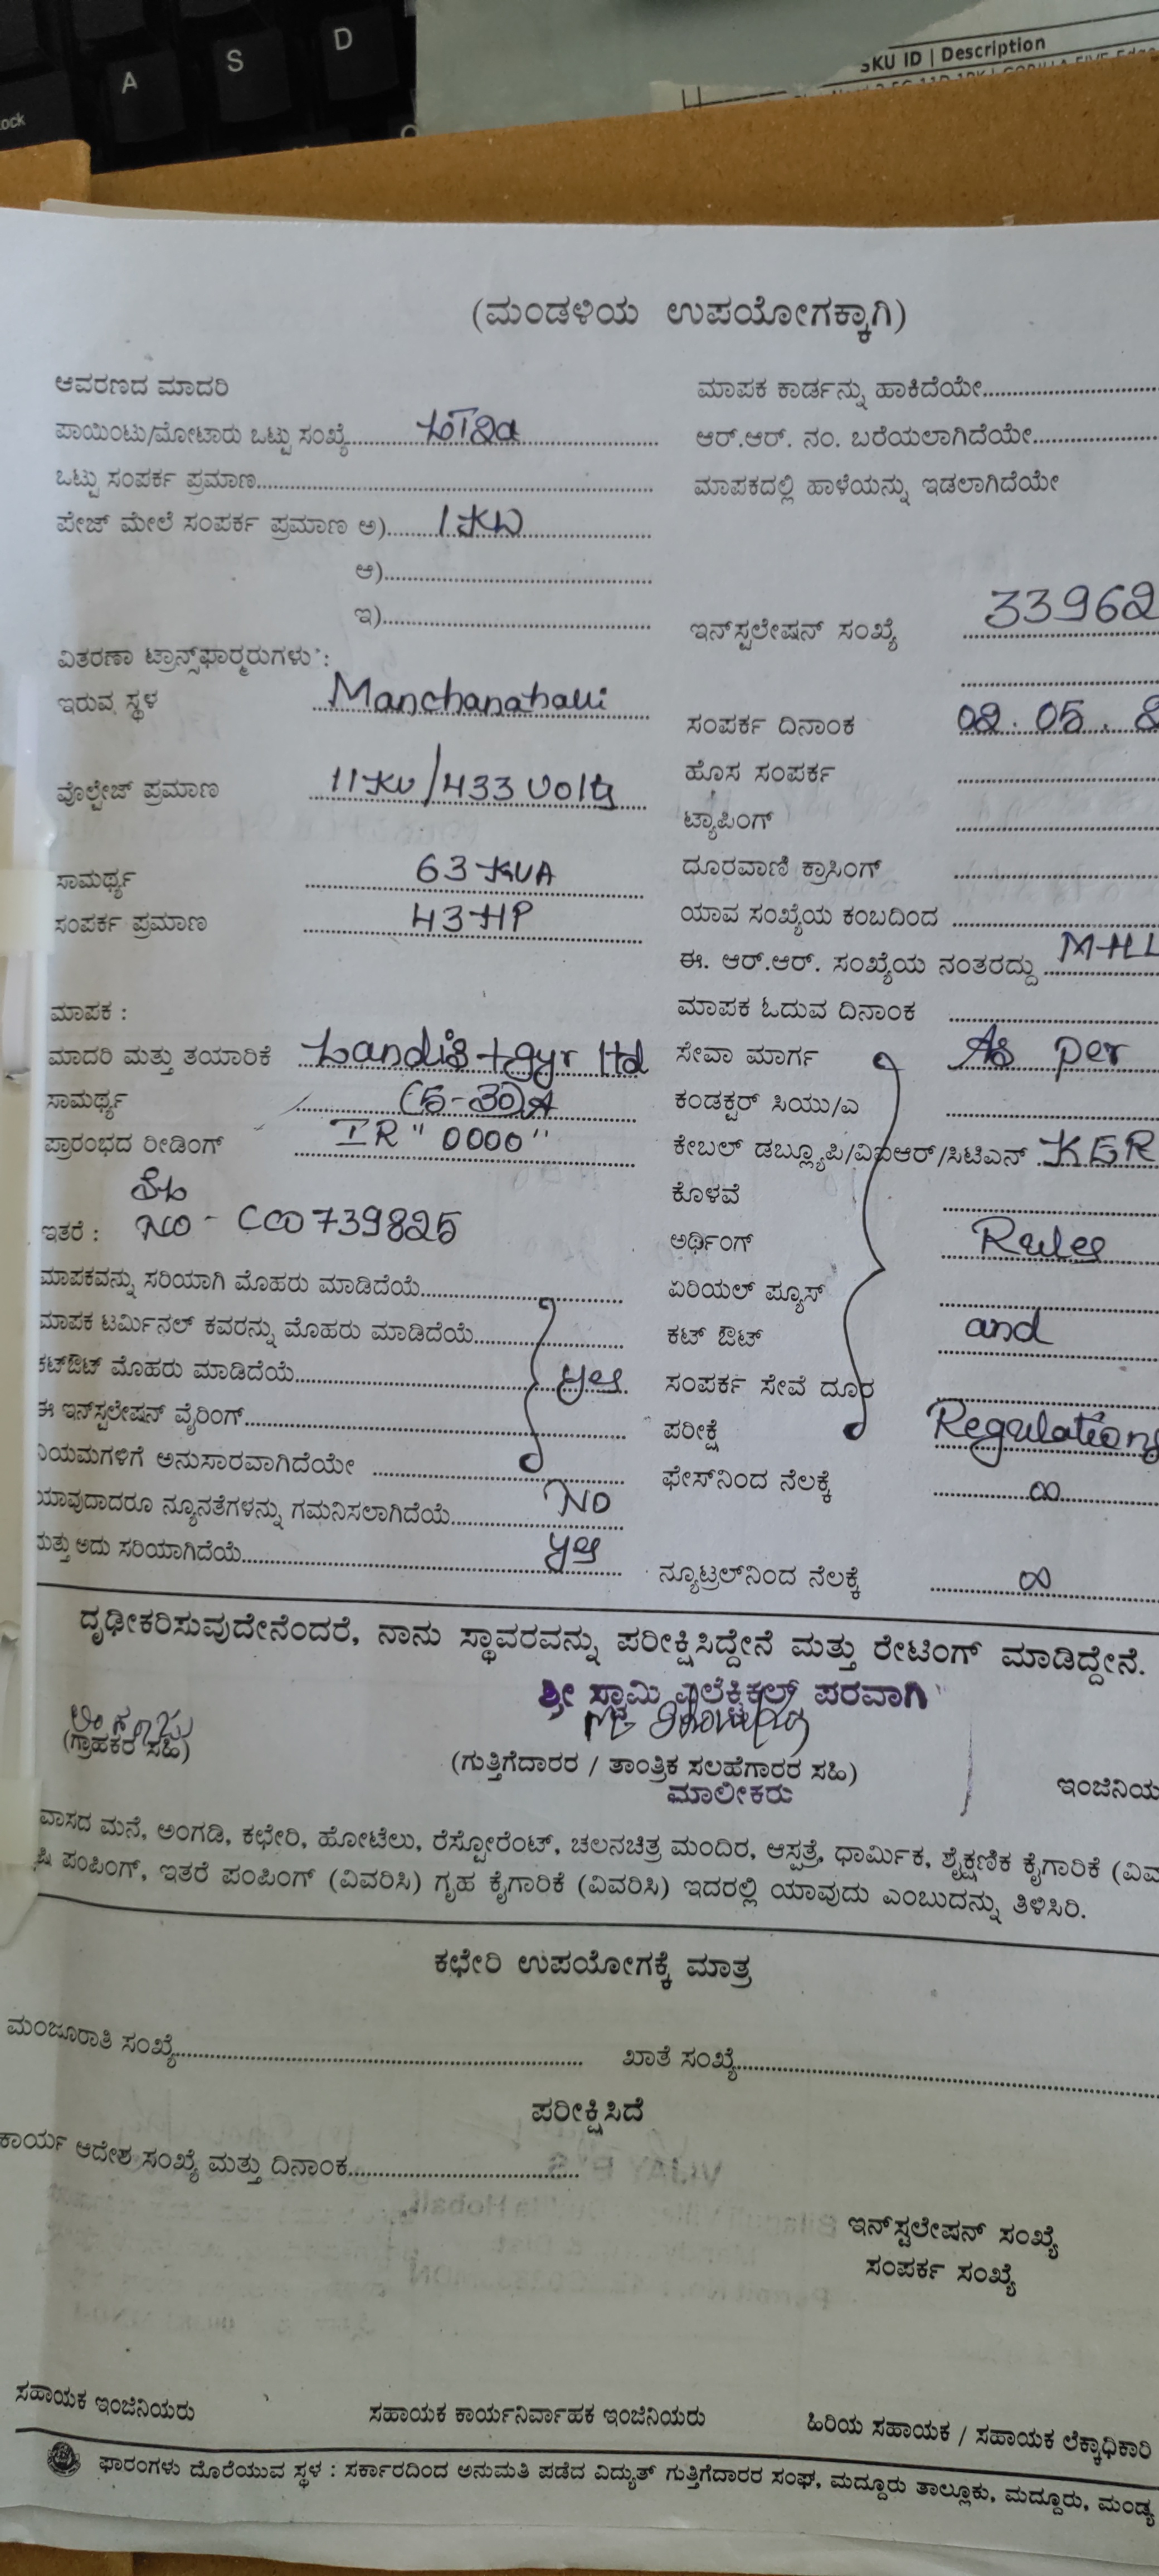 ock
A
S
D
SKU ID | Description
(ಮಂಡಳಿಯ ಉಪಯೋಗಕ್ಕಾಗಿ)
ಆವರಣದ ಮಾದರಿ
ಪಾಯಿಂಟು/ಮೋಟಾರು ಒಟ್ಟು ಸಂಖ್ಯೆ
ಒಟ್ಟು ಸಂಪರ್ಕ ಪ್ರಮಾಣ
ಪೇಜ್ ಮೇಲೆ ಸಂಪರ್ಕ ಪ್ರಮಾಣ ಅ) 1KW
ಆ)
ಇ)
ವಿತರಣಾ ಟ್ರಾನ್ಸ್‌ಫಾರ್ಮರುಗಳು :
ಇರುವ ಸ್ಥಳ Manchanahalli
ವೊಲ್ಟೇಜ್ ಪ್ರಮಾಣ 11KV/433 Volts
ಸಾಮರ್ಥ್ಯ 63 KVA
ಸಂಪರ್ಕ ಪ್ರಮಾಣ 43 HP
ಮಾಪಕ :
ಮಾದರಿ ಮತ್ತು ತಯಾರಿಕೆ Landis+gyr ltd
ಸಾಮರ್ಥ್ಯ (5-30)A
ಪ್ರಾರಂಭದ ರೀಡಿಂಗ್ IR "0000"
SL
ಇತರೆ : NO - CCO739825
ಮಾಪಕವನ್ನು ಸರಿಯಾಗಿ ಮೊಹರು ಮಾಡಿದೆಯೆ
ಮಾಪಕ ಟರ್ಮಿನಲ್ ಕವರನ್ನು ಮೊಹರು ಮಾಡಿದೆಯೆ
ಕಟ್‌ಔಟ್ ಮೊಹರು ಮಾಡಿದೆಯೆ yes
ಈ ಇನ್‌ಸ್ಟಲೇಷನ್ ವೈರಿಂಗ್
ನಿಯಮಗಳಿಗೆ ಅನುಸಾರವಾಗಿದೆಯೇ
ಯಾವುದಾದರೂ ನ್ಯೂನತೆಗಳನ್ನು ಗಮನಿಸಲಾಗಿದೆಯೆ NO
ಮತ್ತು ಅದು ಸರಿಯಾಗಿದೆಯೆ yes
ಮಾಪಕ ಕಾರ್ಡನ್ನು ಹಾಕಿದೆಯೇ
ಆರ್.ಆರ್. ನಂ. ಬರೆಯಲಾಗಿದೆಯೇ
ಮಾಪಕದಲ್ಲಿ ಹಾಳೆಯನ್ನು ಇಡಲಾಗಿದೆಯೇ
ಇನ್‌ಸ್ಟಲೇಷನ್ ಸಂಖ್ಯೆ 33962
ಸಂಪರ್ಕ ದಿನಾಂಕ 02.05.2
ಹೊಸ ಸಂಪರ್ಕ
ಟ್ಯಾಪಿಂಗ್
ದೂರವಾಣಿ ಕ್ರಾಸಿಂಗ್
ಯಾವ ಸಂಖ್ಯೆಯ ಕಂಬದಿಂದ
ಈ. ಆರ್.ಆರ್. ಸಂಖ್ಯೆಯ ನಂತರದ್ದು MHL
ಮಾಪಕ ಓದುವ ದಿನಾಂಕ
ಸೇವಾ ಮಾರ್ಗ As per
ಕಂಡಕ್ಟರ್ ಸಿಯು/ಎ
ಕೇಬಲ್ ಡಬ್ಲ್ಯೂಪಿ/ವಿಐಆರ್/ಸಿಟಿಎನ್ KER
ಕೊಳವೆ
ಅರ್ಥಿಂಗ್ Rules
ಏರಿಯಲ್ ಪ್ಯೂಸ್
ಕಟ್ ಔಟ್ and
ಸಂಪರ್ಕ ಸೇವೆ ದೂರ
ಪರೀಕ್ಷೆ Regulations
ಫೇಸ್‌ನಿಂದ ನೆಲಕ್ಕೆ ∞
ನ್ಯೂಟ್ರಲ್‌ನಿಂದ ನೆಲಕ್ಕೆ ∞
ದೃಢೀಕರಿಸುವುದೇನೆಂದರೆ, ನಾನು ಸ್ಥಾವರವನ್ನು ಪರೀಕ್ಷಿಸಿದ್ದೇನೆ ಮತ್ತು ರೇಟಿಂಗ್ ಮಾಡಿದ್ದೇನೆ.
ಶ್ರೀ ಸ್ವಾಮಿ ಎಲೆಕ್ಟ್ರಿಕಲ್ಸ್ ಪರವಾಗಿ
(ಗ್ರಾಹಕರ ಸಹಿ)
(ಗುತ್ತಿಗೆದಾರರ / ತಾಂತ್ರಿಕ ಸಲಹೆಗಾರರ ಸಹಿ)
ಮಾಲೀಕರು
ಇಂಜಿನಿಯ
ವಾಸದ ಮನೆ, ಅಂಗಡಿ, ಕಛೇರಿ, ಹೋಟೆಲು, ರೆಸ್ಟೋರೆಂಟ್, ಚಲನಚಿತ್ರ ಮಂದಿರ, ಆಸ್ಪತ್ರೆ, ಧಾರ್ಮಿಕ, ಶೈಕ್ಷಣಿಕ ಕೈಗಾರಿಕೆ (ವಿವ
ಷಿ ಪಂಪಿಂಗ್, ಇತರೆ ಪಂಪಿಂಗ್ (ವಿವರಿಸಿ) ಗೃಹ ಕೈಗಾರಿಕೆ (ವಿವರಿಸಿ) ಇದರಲ್ಲಿ ಯಾವುದು ಎಂಬುದನ್ನು ತಿಳಿಸಿರಿ.
ಕಛೇರಿ ಉಪಯೋಗಕ್ಕೆ ಮಾತ್ರ
ಮಂಜೂರಾತಿ ಸಂಖ್ಯೆ ಖಾತೆ ಸಂಖ್ಯೆ
ಪರೀಕ್ಷಿಸಿದೆ
ಕಾರ್ಯ ಆದೇಶ ಸಂಖ್ಯೆ ಮತ್ತು ದಿನಾಂಕ
ಇನ್‌ಸ್ಟಲೇಷನ್ ಸಂಖ್ಯೆ
ಸಂಪರ್ಕ ಸಂಖ್ಯೆ
ಸಹಾಯಕ ಇಂಜಿನಿಯರು ಸಹಾಯಕ ಕಾರ್ಯನಿರ್ವಾಹಕ ಇಂಜಿನಿಯರು ಹಿರಿಯ ಸಹಾಯಕ / ಸಹಾಯಕ ಲೆಕ್ಕಾಧಿಕಾರಿ
ಫಾರಂಗಳು ದೊರೆಯುವ ಸ್ಥಳ : ಸರ್ಕಾರದಿಂದ ಅನುಮತಿ ಪಡೆದ ವಿದ್ಯುತ್ ಗುತ್ತಿಗೆದಾರರ ಸಂಘ, ಮದ್ದೂರು ತಾಲ್ಲೂಕು, ಮದ್ದೂರು, ಮಂಡ್ಯ